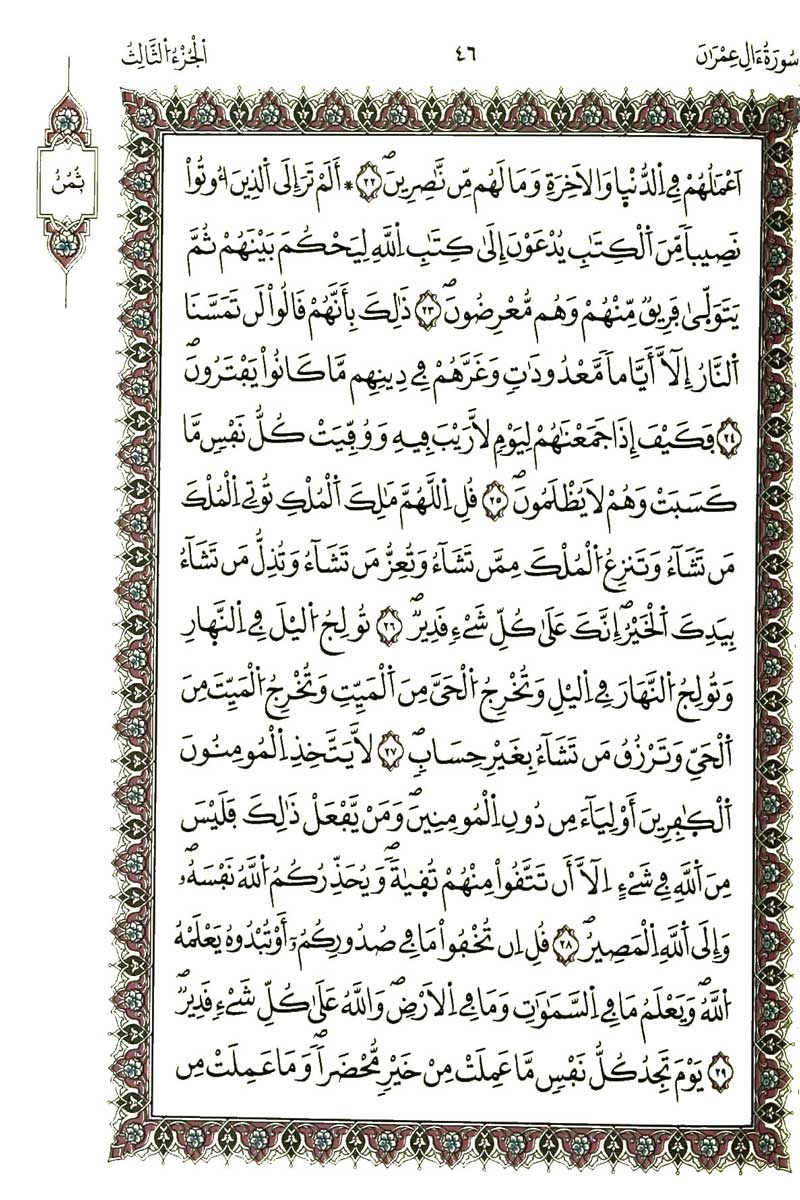 سُورَةُ ءَالِ عِمْرَٰنَ
٤٦
اَلْجُزْءُ اَلثَّالِثُ
ثُمُنُ
أَعْمَٰلُهُمْ فِے اِلدُّنْيٰا وَالَاخِرَةِ وَمَا لَهُم مِّن نَّٰصِرِينَۖ ٢٢ * أَلَمْ تَرَ إِلَى اَلذِينَ أُوتُواْ
نَصِيباٗ مِّنَ اَلْكِتَٰبِ يُدْعَوْنَ إِلَىٰ كِتَٰبِ اِللَّهِ لِيَحْكُمَ بَيْنَهُمْ ثُمَّ
يَتَوَلّ۪ىٰ فَرِيقٞ مِّنْهُمْ وَهُم مُّعْرِضُونَۖ ٢٣ ذَٰلِكَ بِأَنَّهُمْ قَالُواْ لَن تَمَسَّنَا
اَلنَّارُ إِلَّآ أَيَّاماٗ مَّعْدُودَٰتٖ وَغَرَّهُمْ فِے دِينِهِم مَّا كَانُواْ يَفْتَرُونَۖ
٢٤ فَكَيْفَ إِذَا جَمَعْنَٰهُمْ لِيَوْمٖ لَّا رَيْبَ فِيهِ وَوُفِّيَتْ كُلُّ نَفْسٖ مَّا
كَسَبَتْ وَهُمْ لَا يُظْلَمُونَۖ ٢٥ قُلِ اِللَّهُمَّ مَٰلِكَ اَلْمُلْكِ تُوتِے اِلْمُلْكَ
مَن تَشَآءُ وَتَنزِعُ اُلْمُلْكَ مِمَّن تَشَآءُ وَتُعِزُّ مَن تَشَآءُ وَتُذِلُّ مَن تَشَآءُ
بِيَدِكَ اَلْخَيْرُۖ إِنَّكَ عَلَىٰ كُلِّ شَےْءٖ قَدِيرٞۖ ٢٦ تُولِجُ اُليْلَ فِے اِلنَّه۪ارِ
وَتُولِجُ اُلنَّهَارَ فِے اِليْلِ وَتُخْرِجُ اُلْحَيَّ مِنَ اَلْمَيِّتِ وَتُخْرِجُ اُلْمَيِّتَ مِنَ
اَلْحَيِّ وَتَرْزُقُ مَن تَشَآءُ بِغَيْرِ حِسَابٖۖ ٢٧ لَّا يَتَّخِذِ اِلْمُومِنُونَ
اَلْكٰ۪فِرِينَ أَوْلِيَآءَ مِن دُونِ اِلْمُومِنِينَۖ وَمَنْ يَّفْعَلْ ذَٰلِكَ فَلَيْسَ
مِنَ اَللَّهِ فِے شَےْءٍ اِلَّآ أَن تَتَّقُواْ مِنْهُمْ تُق۪يٰةٗۖ وَيُحَذِّرُكُمُ اُللَّهُ نَفْسَهُۥۖ
وَإِلَى اَللَّهِ اِلْمَصِيرُۖ ٢٨ قُلِ اِن تُخْفُواْ مَا فِے صُدُورِكُمُۥٓ أَوْ تُبْدُوهُ يَعْلَمْهُ
اُللَّهُۖ وَيَعْلَمُ مَا فِے اِلسَّمَٰوَٰتِ وَمَا فِے اِلَارْضِۖ وَاللَّهُ عَلَىٰ كُلِّ شَےْءٖ قَدِيرٞۖ
٢٩ يَوْمَ تَجِدُ كُلُّ نَفْسٖ مَّا عَمِلَتْ مِنْ خَيْرٖ مُّحْضَراٗۖ وَمَا عَمِلَتْ مِن